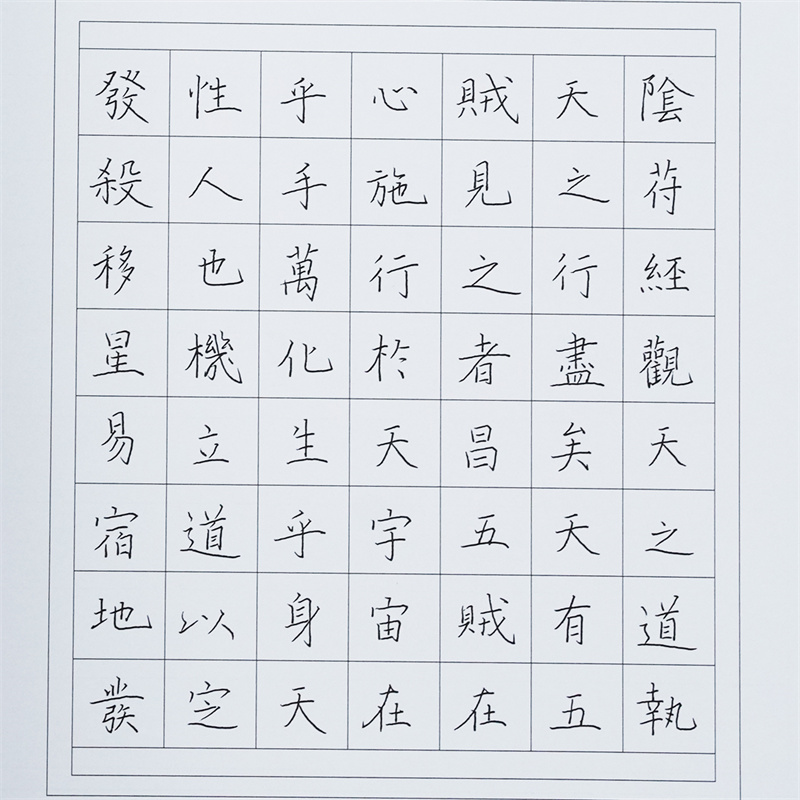 陰苻經觀天之道執
天之行盡矣天有五
賊見之者昌五賊在
心施行於天宇宙在
乎手萬化生乎身天
性人也機立道以定
發殺移星易宿地發